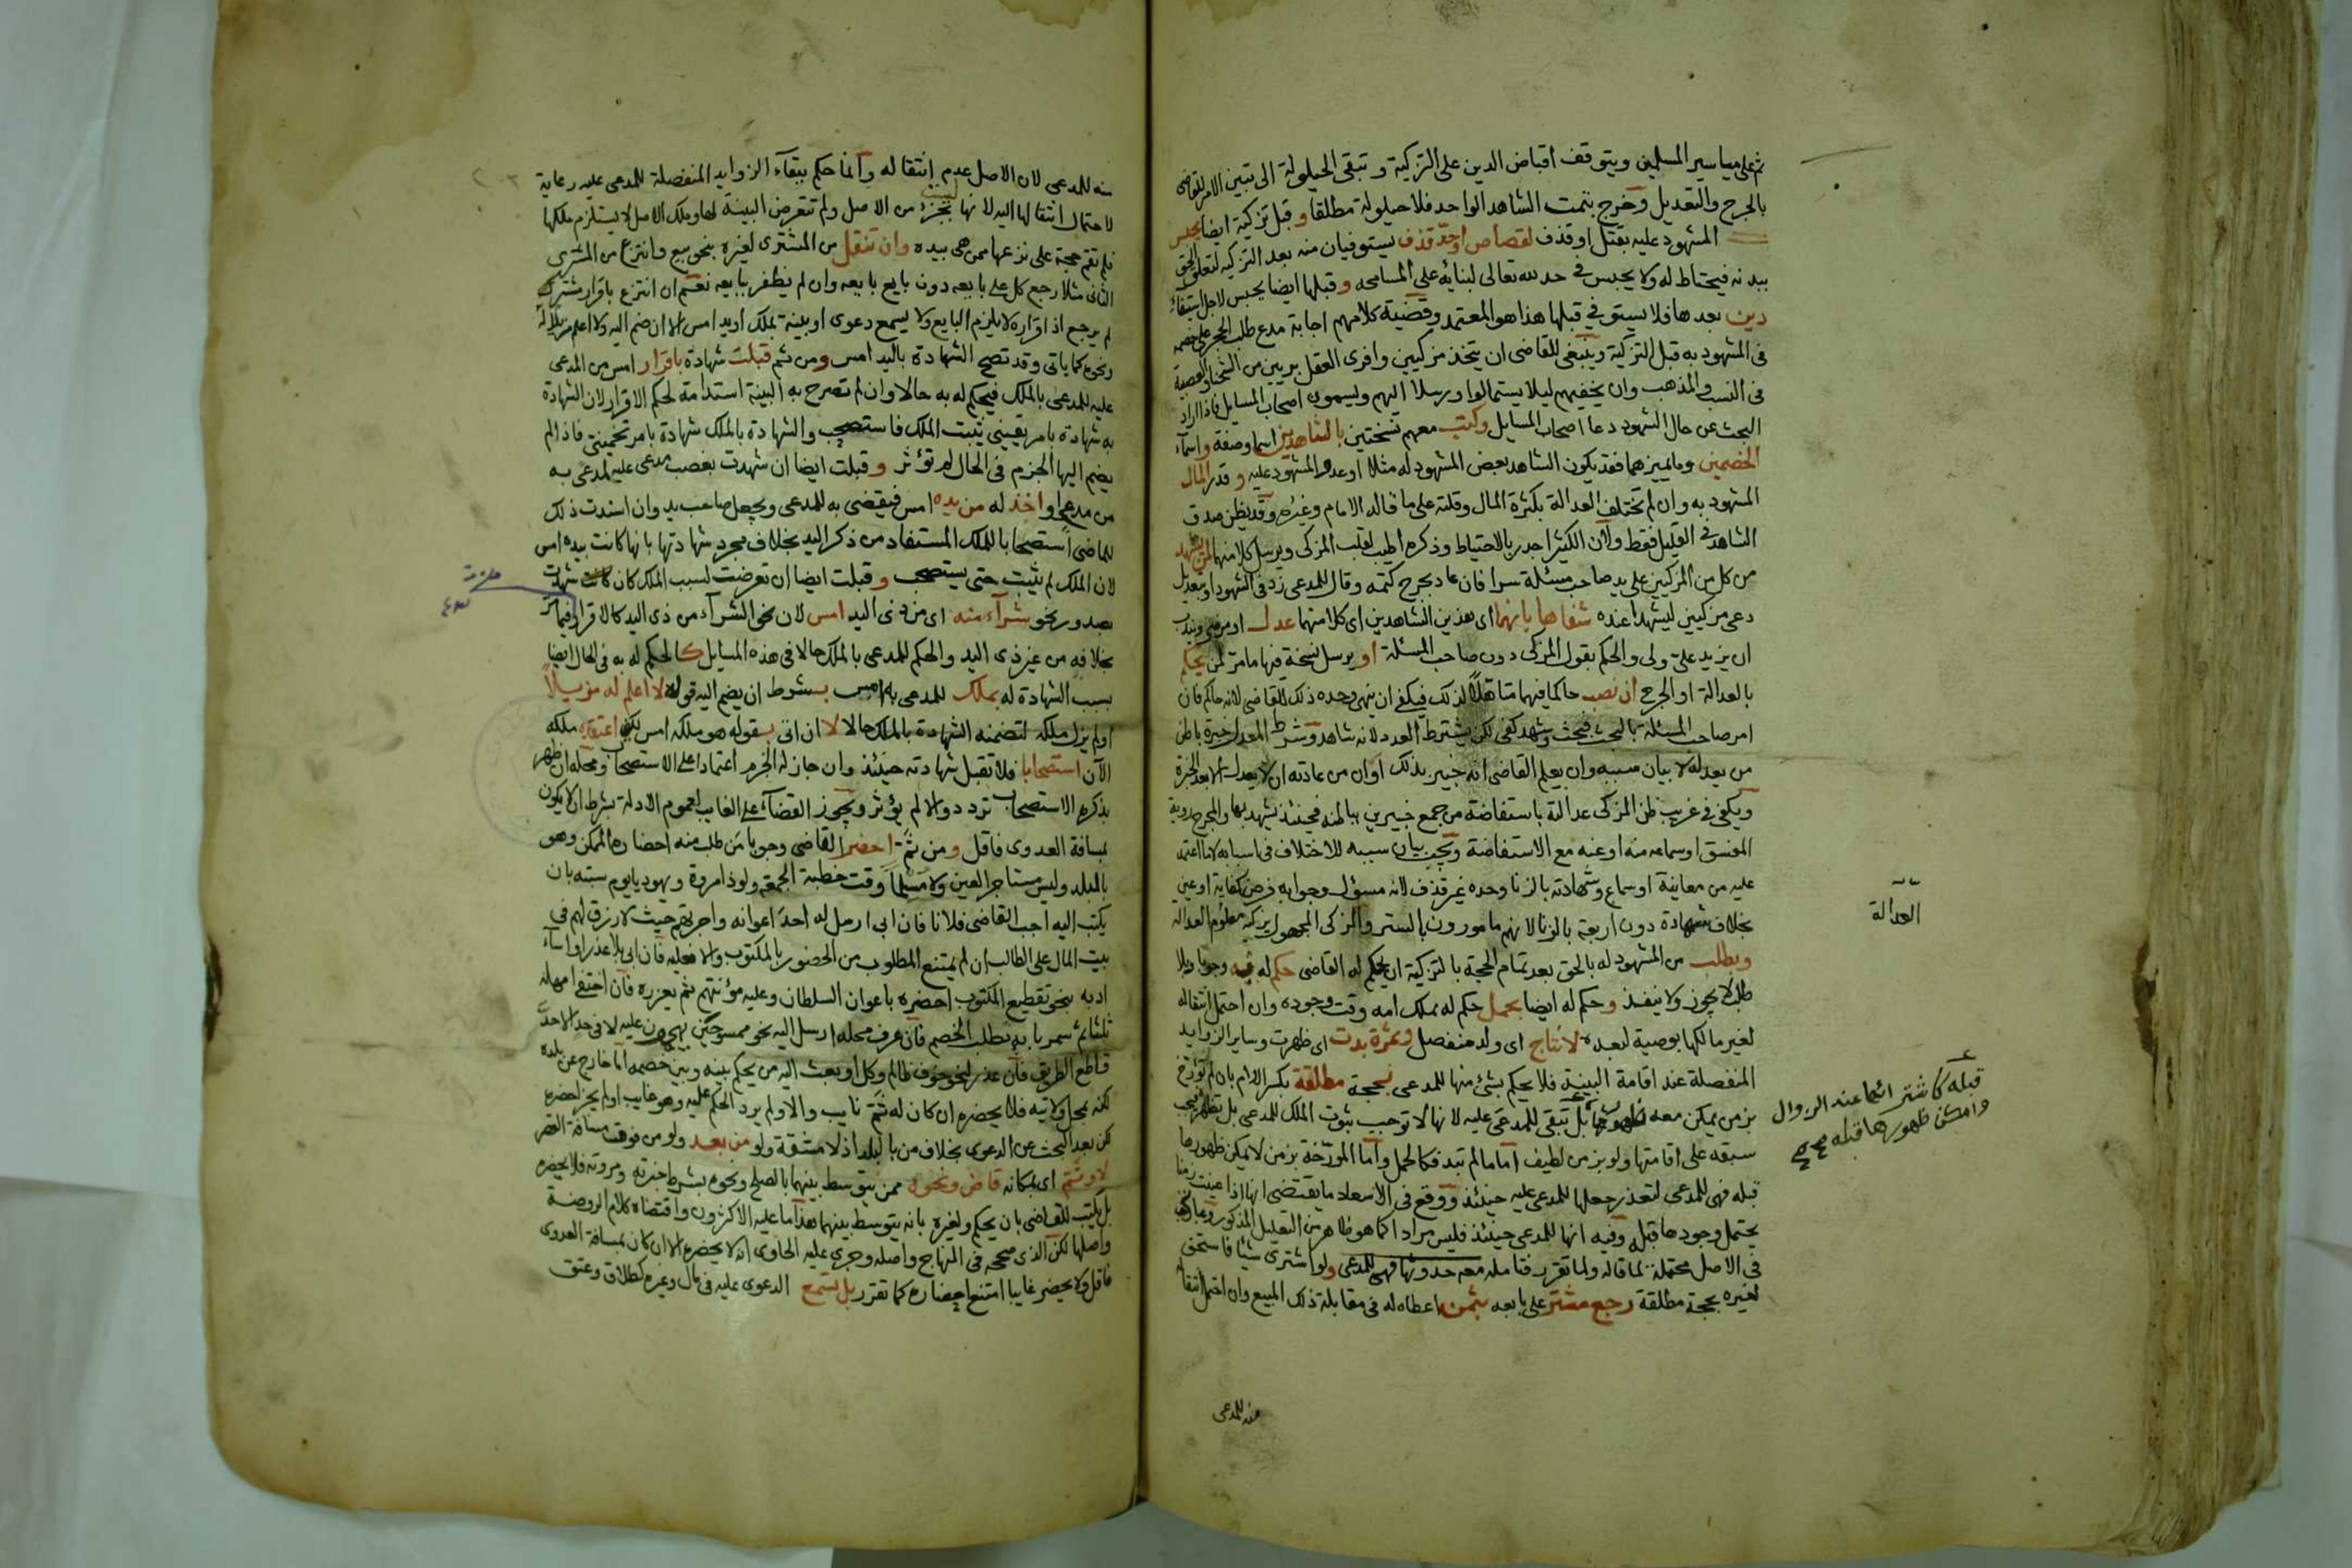 ثم على مياسير المسلمين ويتوقف اقباض الدين على التزكية وتبقى الحيلولة الى تبين الامر للقاضى
بالجرح والتعديل وخرج بتمت الشاهد الواحد فلا حيلولة مطلقا وقبل تزكية ايضا يحبس
المشهود عليه بقتل او قذف لقصاص او حد قذف يستوفيان منه بعد التزكيه لتعلق الحق
ببدنه فيحتاط له ولا يحبس فى حد لله تعالى لبنايه على المسامحه وقبلها ايضا يحبس لاجل استيفاء
دين بعدها فلا يستوفى قبلها هذا هو المعتمد وقضية كلامهم اجابة مدع طلب الحجر على خصمه
فى المشهود به قبل التزكية وينبغى للقاضى ان يتخذ مزكيين وافرى العقل بريين من الشحنا والعصبية
فى النسب والمذهب وان يخفيهم ليلا يستمالوا ورسلا اليهم ويسمون اصحاب المسايل فاذا اراد
البحث عن حال الشهود دعا اصحاب المسايل وكتب معهم نسختين بالشاهدين اسما وصفة واسماء
الخصمين وما يميزهما فقد يكون الشاهد بعض المشهود له مثلا او عدو المشهود عليه وقدر المال
المشهود به وان لم تختلف العدالة بكثرة المال وقلته على ما قاله الامام وغيره وقد يظن صدق
الشاهد فى القليل فقط ولان الكثير اجدر بالاحتياط وذكره اطيب لقلب المزكى ويرسل كلا منهما
من كل من المزكيين على يد صاحب مسئلة سرا فان عاد بجرح كتمه وقال للمدعى زد فى الشهود او بتعديل
دعى مزكيين ليشهدا عنده شفاها بانهما اى هذين الشاهدين اى كلا منهما عدل او مرضى ويندب
ان يزيد على ولى والحكم بقول المزكى دون صاحب المسئلة او يرسل نسخة فيها ما مر لمن يحكم
بالعدالة او الجرح ان نصب حاكما فيهما متاهلا لذلك فيكفى ان ينهى وحده ذلك للقاضى لانه حاكم فان
امر صاحب المسئلة بالبحث فبحث وشهد كفى لكن يشترط العدد لانه شاهد وشرط المعدل خبرة باطن
من يعدله لا بيان سببه وان يعلم القاضى انه خبير بذلك او ان من عادته ان لا يعدل الا بعد الخبرة
ويكفى فى غريب ظن المزكى عدالة باستفاضة من جمع خبيرين بباطنه فحينئذ يشهد بها والجرح روية
المفسق او سماعه منه او عنه مع الاستفاضة ويجب بيان سببه للاختلاف فى اسبابه لا ما اعتمد
عليه من معاينة او سماع وشهادته بالزنا وحده غير قذف لانه مسؤل وجوابه فرض كفاية او عين
بخلاف شهادة دون اربعة بالزنا لانهم مامورون بالستر والزكى المجهول يزكيه معلوم العدالة
ويطلب من المشهود له بالحق بعد تمام الحجة بالتزكية ان يحكم له القاضى حكم له به وجوبا وبلا
طلب لا يجوز ولا ينفذ وحكم له ايضا بحمل حكم له بملك امه وقت وجوده وان احتمل انتقاله
لغير مالكها بوصية لبعده لا نتاج اى ولد منفصل وثمرة بدت اى ظهرت وساير الزوايد
المنفصلة عند اقامة البينة فلا يحكم بشئ منها للمدعى بحجة مطلقة بكسر اللام بان لم تؤرخ
بزمن يمكن معه ظهورها بل تبقى للمدعى عليه لانها لا توجب ثبوت الملك للمدعى بل تظهره فيجب
سبقه على اقامتها ولو بزمن لطيف اما ما لم تبد فكالحمل واما المورخة بزمن لا يمكن ظهورها
قبله فهى للمدعى لتعذر جعلها للمدعى عليه حينئذ ووقع فى الاسعاد ما يقتضى انها اذا عينت زمنا
يحتمل وجودها قبل وفيه انها للمدعى حينئذ فليس مرادا كما هو ظاهر من التعليل المذكور
فى الاصل محتملة لما قاله ولما تقرر فتامله معه حدوثها فهى للمدعى ولو اشترى شيئا فاستحق
لغيره بحجة مطلقة رجع مشتر على بايعه بثمن اعطاه له فى مقابلة ذلك المبيع وان احتمل انتقاله
منه للمدعى
العدالة
قبله كاشتر ائتما عند الزوال
وامكن ظهورها قبله صح
منه للمدعى لان الاصل عدم انتقاله وانما حكم ببقاء الزوايد المنفصلة للمدعى عليه رعاية
لاحتمال انتقالها اليه لانها بجزء من الاصل ولم تتعرض البينة لها وملك الاصل لا يستلزم ملكها
فلم تقم حجة على نزعها ممن هى بيده وان تنقل من المشترى لغيره بنحو بيع وانتزع من المشترى
الثانى مثلا رجع كل على بايعه دون بايع بايعه وان لم يظفر ببايعه نعم ان انتزع باقرار مشتر
لم يرجع اذ اقراره لا يلزم البايع ولا يسمع دعوى او بينة بملك او يد امس الا ان ضم اليه ولا اعلم مزيلا له
ونحوه كما ياتى وقد تصح الشهادة باليد امس ومن ثم قبلت شهادة باقرار امس من المدعى
عليه للمدعى بالملك فيحكم له به حالا وان لم تصرح به البينة استدامة لحكم الاقرار لان الشهادة
به شهادة بامر يقينى يثبت الملك فاستصحب والشهادة بالملك شهادة بامر تخمينى فاذا لم
يضم اليها الجزم فى الحال لم تؤثر وقبلت ايضا ان شهدت بغصب مدعى عليه لمدعى به
من مدع او اخذ له من يده امس فيقضى به للمدعى ويجعل صاحب يد وان اسندت ذلك
للماضى استصحابا للملك المستفاد من ذكر اليد بخلاف مجرد شهادتها بانها كانت بيده امس
لان الملك لم يثبت حتى يستصحب وقبلت ايضا ان تعرضت لسبب الملك كان شهدت
بصدور نحو شرآء منه اى من ذى اليد امس لان نحو الشرآء من ذى اليد كالاقرار فيما مر
بخلافه من غير ذى اليد والحكم للمدعى بالملك حالا فى هذه المسايل كالحكم له به فى الحال ايضا
بسبب الشهادة له بملك للمدعى به امس بشرط ان يضم اليه قوله لا اعلم له مزيلا
او لم يزل ملكه لتضمنه الشهادة بالملك حالا لا ان اتى بقوله هو ملكه امس لكن اعتقده ملكه
الآن استصحابا فلا تقبل شهادته حينئذ وان جاز له الجزم اعتمادا على الاستصحاب ومحله ان ظهر
بذكره الاستصحاب تردد والا لم يؤثر ويجوز القضآء على الغايب لعموم الادلة بشرط ان لا يكون
بمسافة العدوى فاقل ومن ثم احضر القاضى وجوبا من طلب منه احضاره الممكن وهو
بالبلد وليس مستاجر العين ولا مسلما وقت خطبة الجمعة ولو ذا مروة ويهوديا يوم سبته بان
يكتب اليه اجب القاضى فلانا فان ابى ارسل له احد اعوانه واجرتهم حيث لا رزق لهم فى
بيت المال على الطالب ان لم يمتنع المطلوب من الحضور بالمكتوب والا فعليه فان ابى بلا عذر او اسآء
ادبه بنحو تقطيع المكتوب احضره باعوان السلطان وعليه مؤنتهم ثم يعزره فان اختفى امهله
ثلثا ثم سمر بابه بطلب الخصم فان عرف محله ارسل اليه نحو ممسوحين يهجمون عليه لا فى حد الا حد
قاطع الطريق فان عذر لنحو خوف ظالم وكل او بعث اليه من يحكم بينه وبين خصمه اما خارج عن بلده
لكنه بمحل ولايته فلا يحضره ان كان له ثم نايب والا ولم يرد الحكم عليه وهو غايب اولم يجز احضره
لكن بعد البحث عن الدعوى بخلاف من بالبلد اذ لا مشقة ولو من بعد ولو من فوق مسافة القصر
لا وثم اى بمكانه قاض ونحوه ممن يتوسط بينهما بالصلح ونحوه بشرط خفرته ومروته فلا يحضره
بل يكتب للقاضى بان يحكم ولغيره بانه يتوسط بينهما هذا ما عليه الاكثرون واقتضاه كلام الروضة
واصلها لكن الذى صححه فى المنهاج واصله وجرى عليه الحاوى انه لا يحضره الا ان كان بمسافة العدوى
فاقل ولا يحضر غايبا امتنع احضاره كما تقرر بل تسمع الدعوى عليه فى مال وغيره كطلاق وعتق